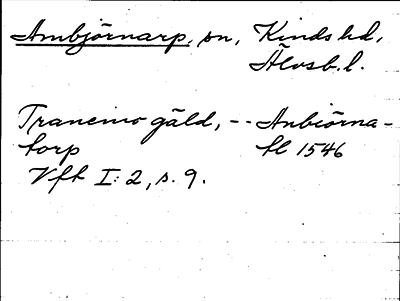 Ambjörnarp, sn, Kinds hd,
Älvsb. l.
Tranemo gäld, -- Anbiörna-
torp tl 1546
Vft I: 2, s. 9.